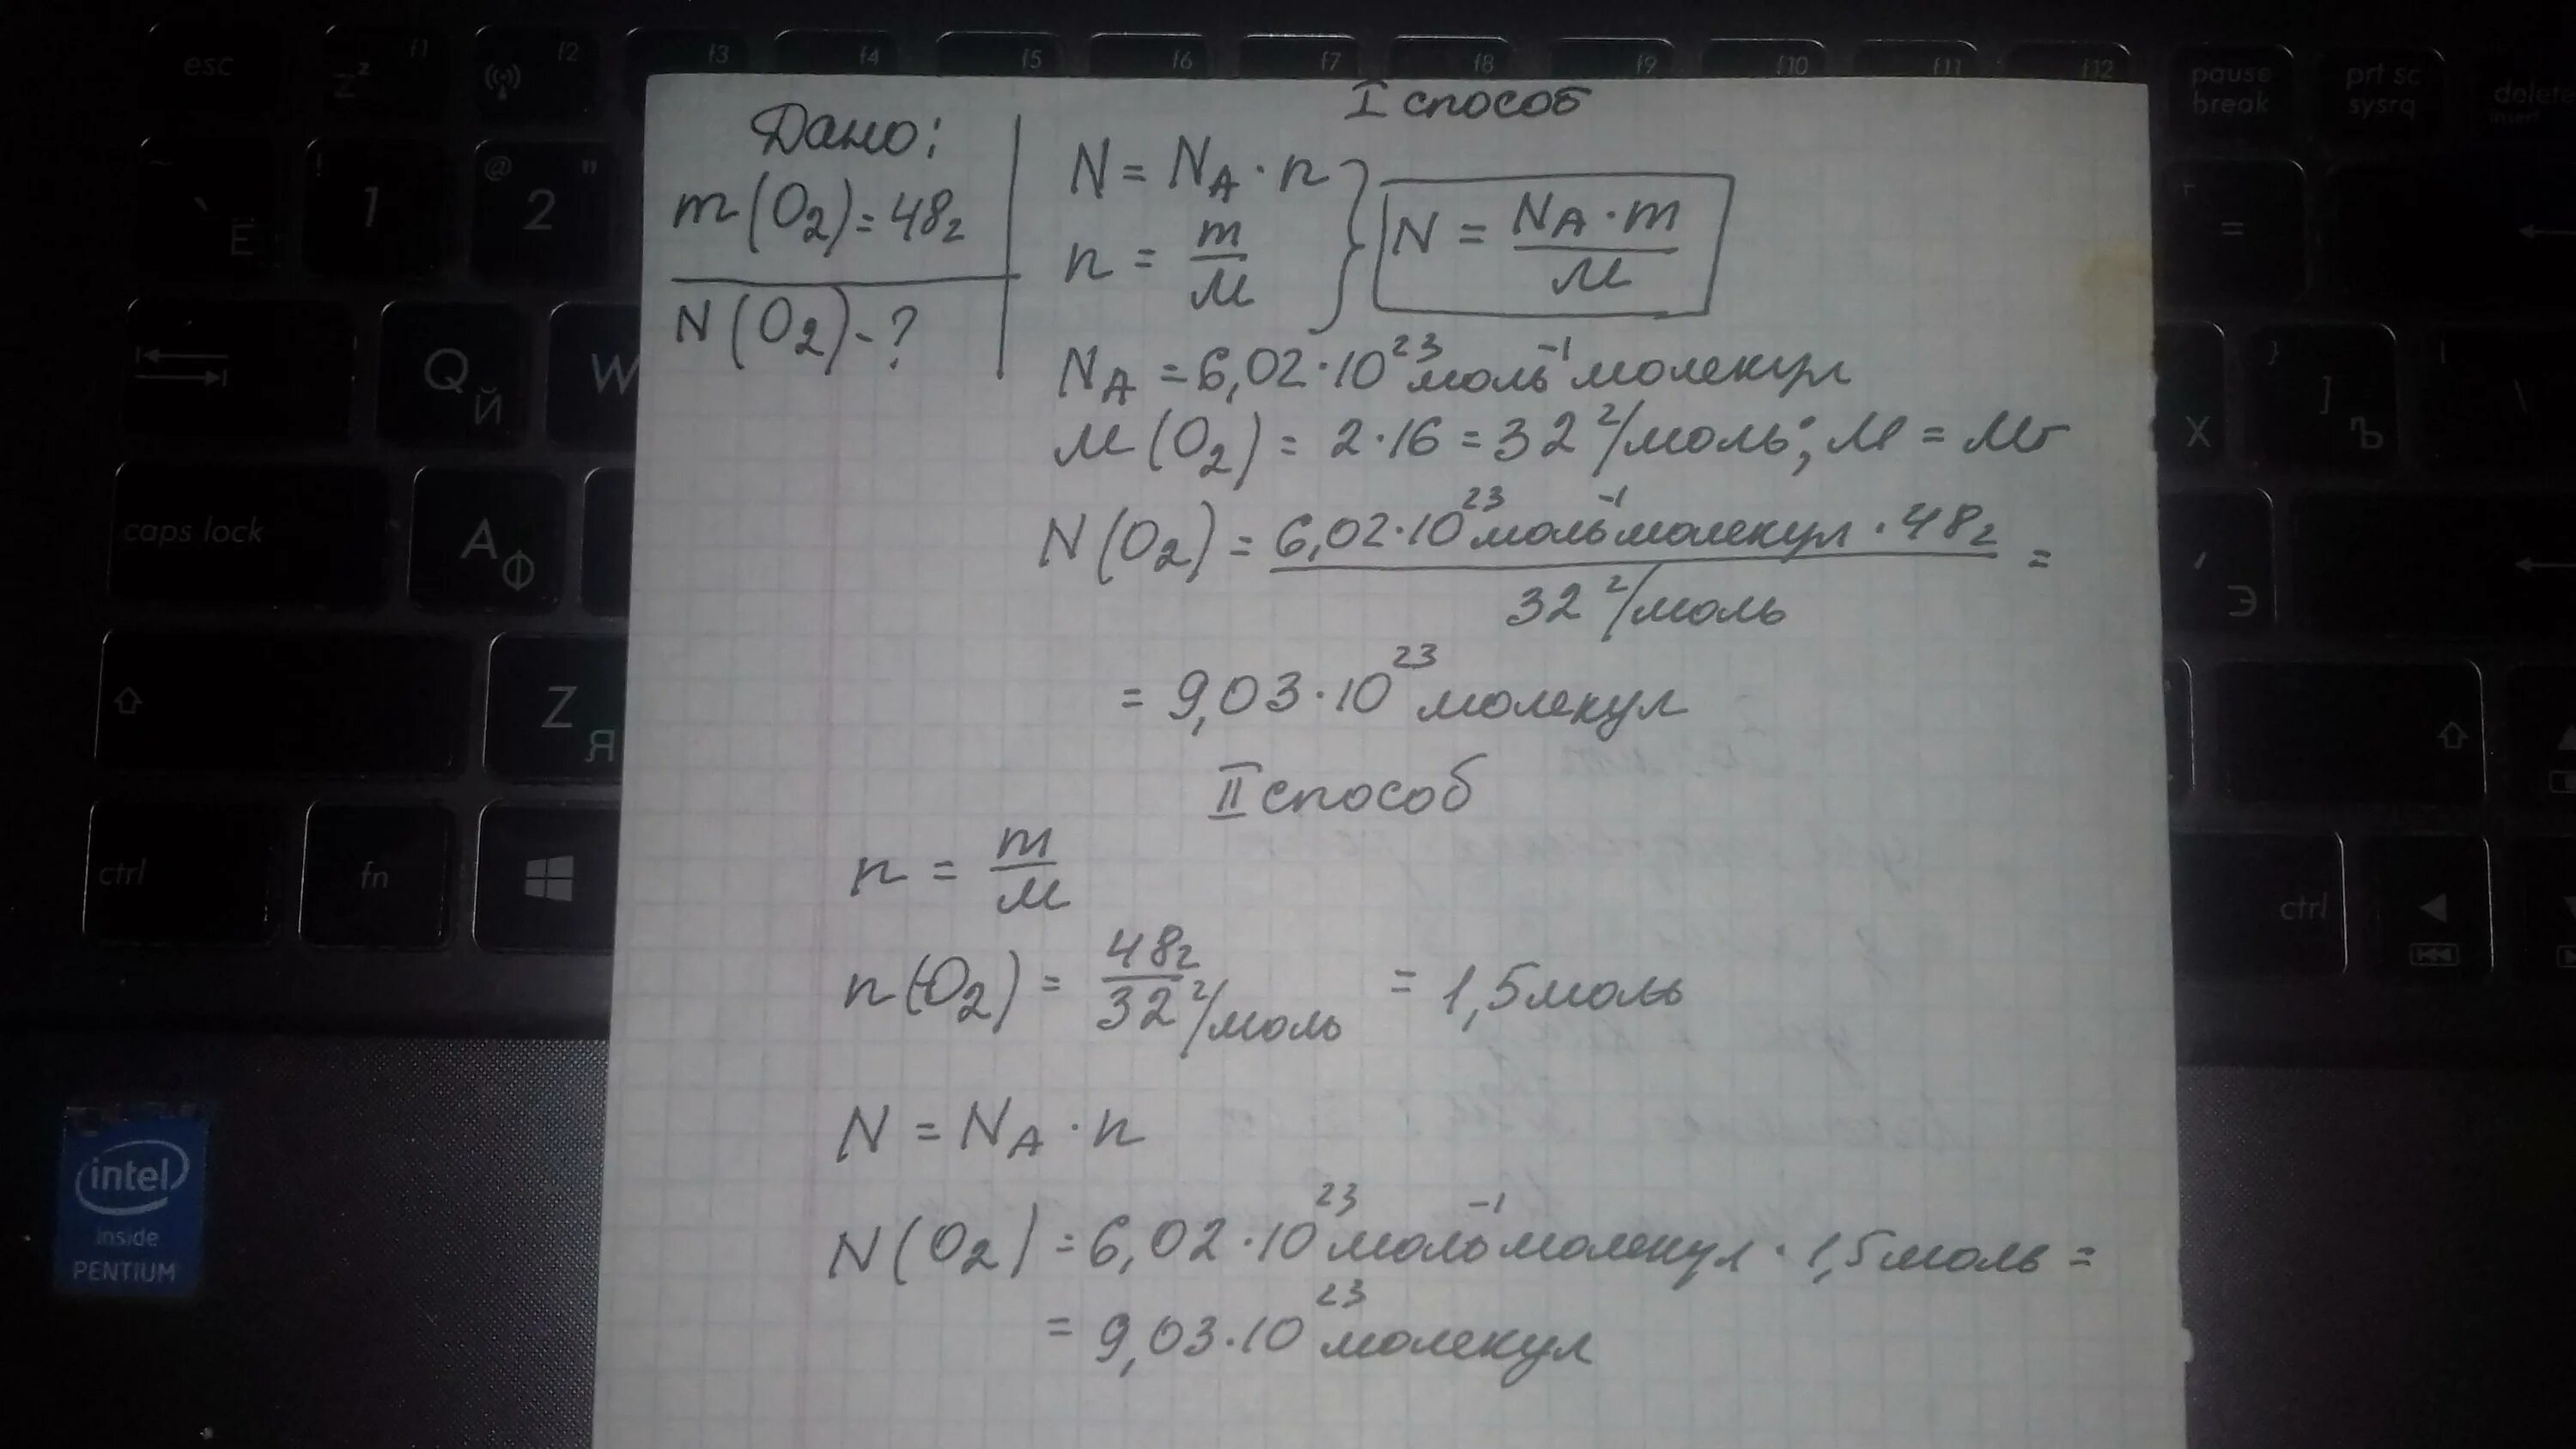 esc f1 f2 f3 f4 f5 f6 f7 f8 f9 f10 f11 f12 pause break prt sc sysrq delete insert
I способ
Дано:
m(O₂)=48г
N(O₂)-?
N = N_A · n
n = m/M
N = N_A · m / M
N_A = 6,02·10²³ моль⁻¹ молекул
M(O₂) = 2·16 = 32 г/моль; M = Mr
N(O₂) = 6,02·10²³ моль⁻¹ молекул · 48г / 32 г/моль =
= 9,03·10²³ молекул
II способ
n = m/M
n(O₂) = 48г / 32 г/моль = 1,5 моль
N = N_A · n
N(O₂) = 6,02·10²³ моль⁻¹ молекул · 1,5 моль =
= 9,03·10²³ молекул
` Ё ! 1 @ " 2 + =
Q Й W } ] Х Ъ | \
caps lock A Ф ' Э
Z Я
ctrl fn ctrl
intel
inside
PENTIUM